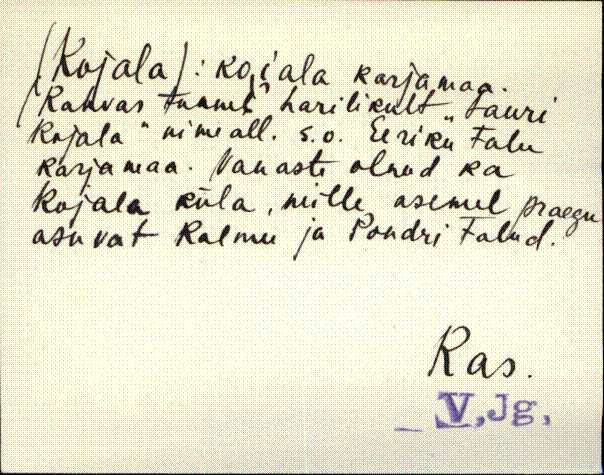 (Kojala): kojala karjamaa.
Rahvas tunneb harilikult „Lauri
Kojala" nime all. s.o. Eeriku talu
karjamaa. Vanasti olnud ka
Kojala küla, mille asemel praegu
asuvat Kalmu ja Pondri talud.
Ras.
V, Jg,